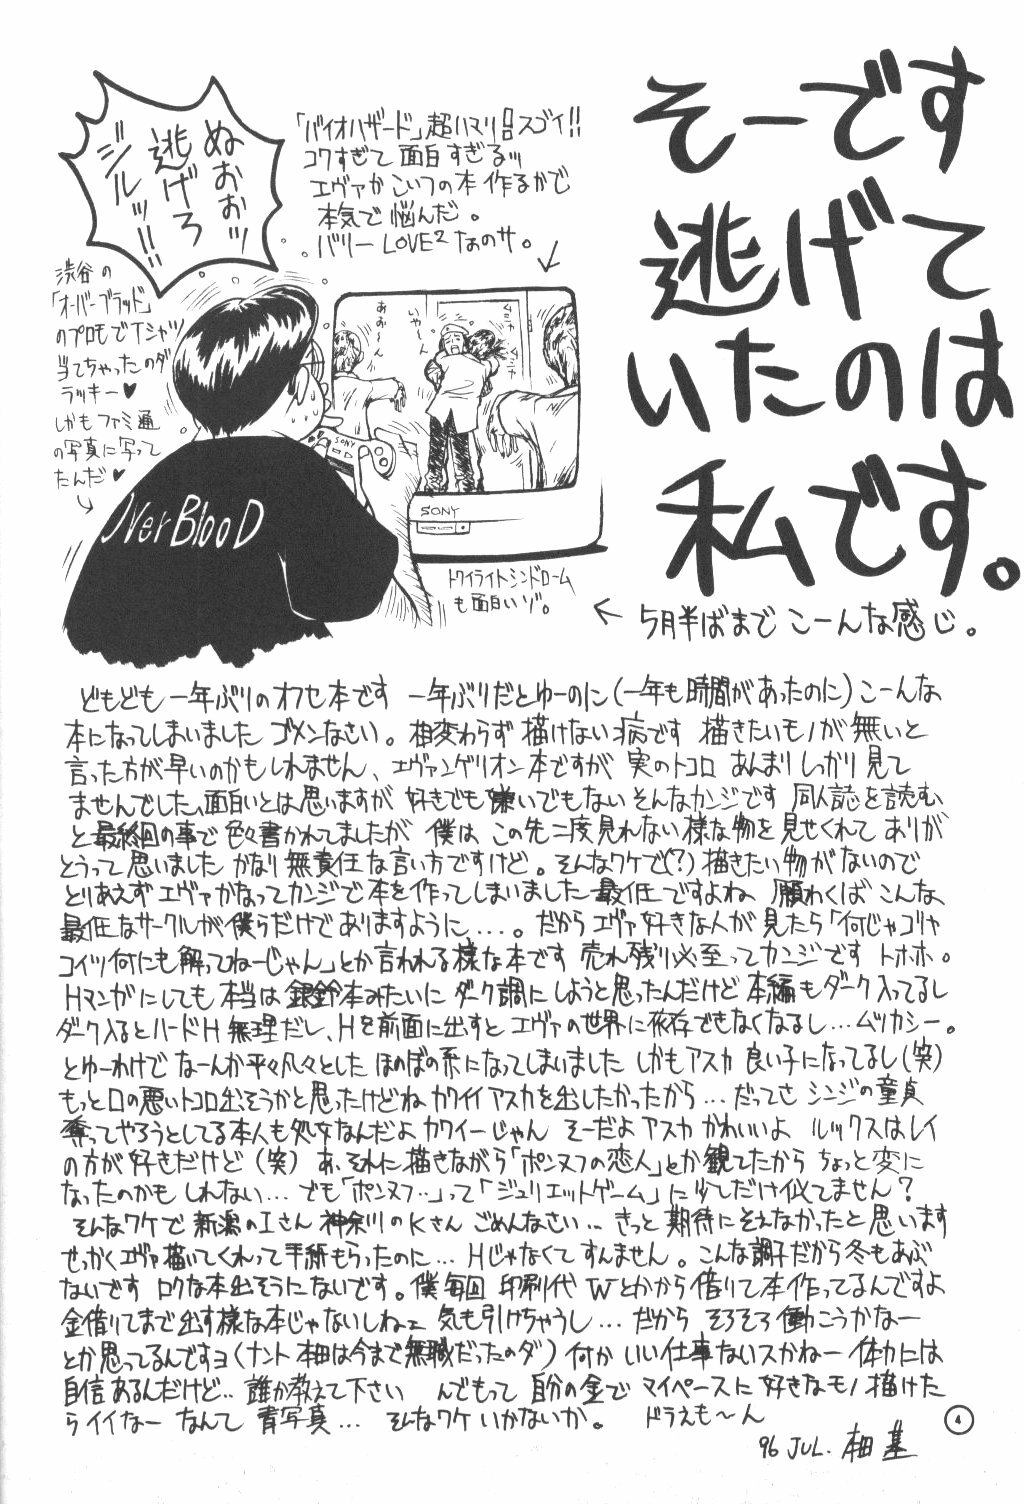 そーです
逃げて
いたのは
私です。
「バイオハザード」超ハマリ スゴイ!!
コワすぎて面白すぎるッ
エヴァかこいつの本作るかで
本気で悩んだ。
バリーLOVE2なのサ。
ぬおぉッ
逃げろ
ジルッ!!
渋谷の
「オーバーブラッド」
のプロモでTシャツ
当てちゃったのダ
ラッキー♥
しかもファミ通
の写真に写って
たんだ♥
いや〜ん
あお〜ん
SONY
OverBlooD
SONY
トワイライトシンドローム
も面白いゾ。
← 5月半ばまでこーんな感じ。
どもども一年ぶりのオフセ本です 一年ぶりだとゆーのに(一年も時間があったのに)こーんな
本になってしまいました ゴメンなさい。相変わらず描けない病です 描きたいモノが無いと
言った方が早いのかもしれません、エヴァンゲリオン本ですが 実のトコロ あんまりしっかり見て
ませんでした、面白いとは思いますが 好きでも嫌いでもないそんなカンジです 同人誌を読む
と最終回の事で色々書かれてましたが 僕は この先二度見れない様な物を見せくれて ありが
とうって思いました かなり無責任な言い方ですけど。そんなワケで(?)描きたい物がないので
とりあえずエヴァかなってカンジで本を作ってしまいました 最低ですよね 願わくば こんな
最低なサークルが僕らだけでありますように…。だからエヴァ好きな人が見たら「何じゃゴリャ
コイツ何にも解ってねーじゃん」とか言われる様な本です 売れ残り必至ってカンジです トホホ。
Hマンガにしても本当は銀鈴本みたいに ダーク調にしようと思ったんだけど 本編もダーク入ってるし
ダーク入るとハードH無理だし、Hを前面に出すと エヴァの世界に依存できなくなるし…ムツカシー。
とゆーわけで なーんか平々凡々とした ほのぼの系になってしまいました しかもアスカ 良い子になってるし(笑)
もっと口の悪いトコロ出そうかと思ったけどね カワイイアスカを出したかったから…だってさ シンジの童貞
奪ってやろうとしてる本人も処女なんだよ カワイーじゃん そーだよアスカ かわいいよ ルックスはレイ
の方が好きだけど(笑) あ、それに描きながら「ポンヌフの恋人」とか観てたから ちょっと変に
なったのかもしれない… でも「ポンヌフ‥」って「ジュリエットゲーム」に少しだけ似てません?
そんなワケで新潟のIさん 神奈川のKさん ごめんなさい‥ きっと期待にそえなかったと思います
せっかくエヴァ描いてくれって手紙もらったのに… Hじゃなくてすんません。こんな調子だから冬もあぶ
ないです ロクな本出そうにないです。僕毎回 印刷代 Wとかから借りて本作ってるんですよ
金借りてまで出す様な本じゃないしねェ 気も引けちゃうし… だから そろそろ働こうかなー
とか思ってるんですヨ(ナント 柚は今まで無職だったのダ) 何か いい仕事ないスかねー 体力には
自信あるんだけど‥ 誰か教えて下さい んでもって 自分の金で マイペースに好きなモノ描けた
らイイなー なんて 青写真… そんなワケいかないか。 ドラえも〜ん
96 JUL.
4